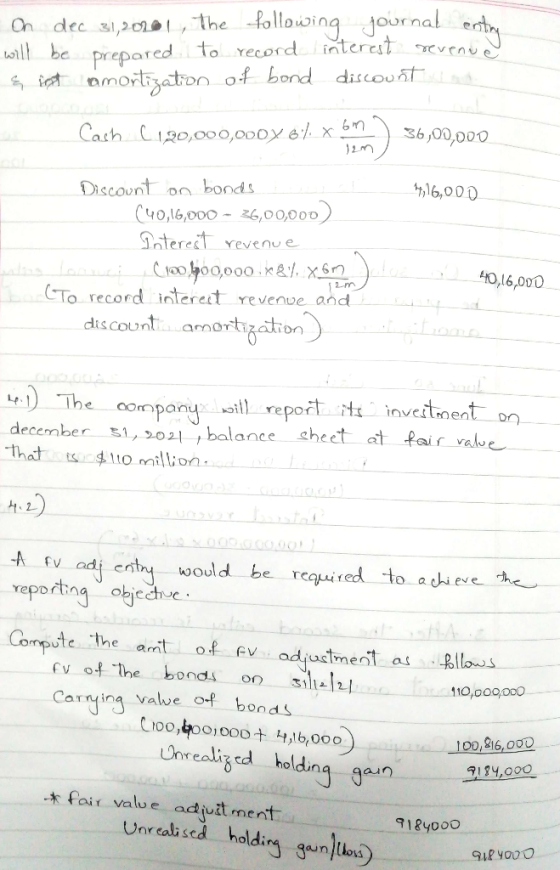 On dec 31,2021, The following journal entry
will be prepared to record interest revenue
& amortization of bond discount
Cash (120,000,000 x 6% x 6m/12m) 36,00,000
Discount on bonds 4,16,000
(40,16,000 - 36,00,000)
Interest revenue
(100,400,000 x 8% x 6m/12m) 40,16,000
(To record interest revenue and
discount amortization)
4.1) The company will report its investment on
december 31, 2021, balance sheet at fair value
That is $110 million.
4.2)
A FV adj entry would be required to achieve the
reporting objective.
Compute the amt of FV adjustment as follows
FV of the bonds on 31/12/21 110,000,000
Carrying value of bonds
(100,400,000 + 4,16,000) 100,816,000
Unrealized holding gain 9184,000
* fair value adjustment 9184000
Unrealised holding gain/(loss) 9184000